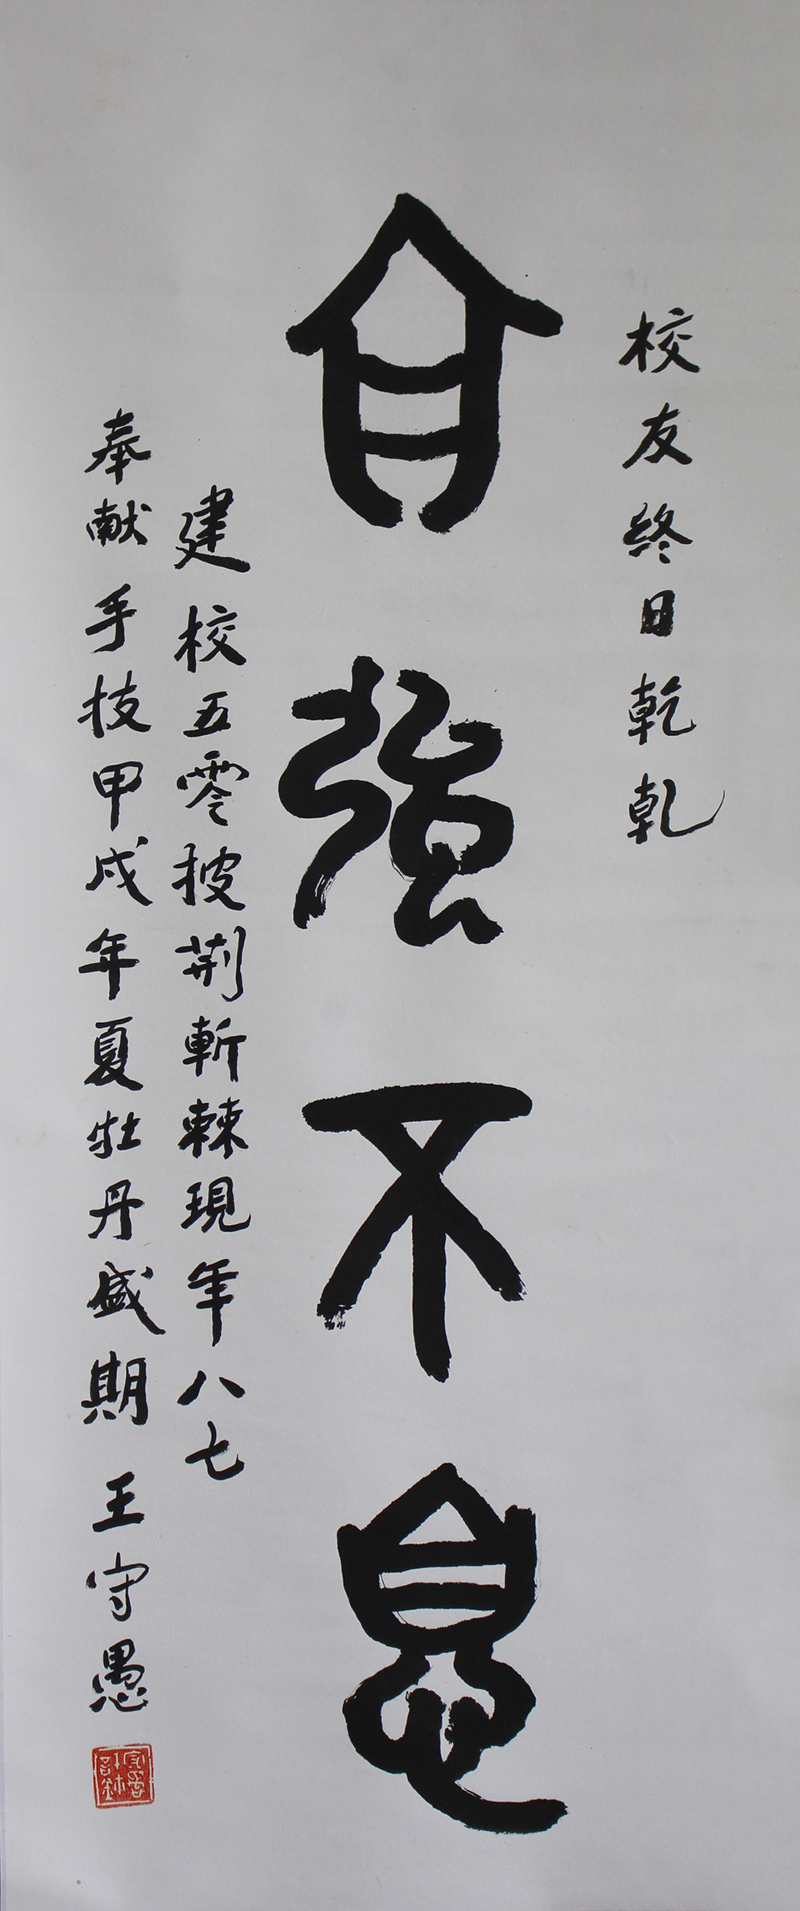 校友終日乾乾
自強不息
建校五零披荆斬棘現年八七
奉献手技甲戌年夏牡丹盛期
王守愚